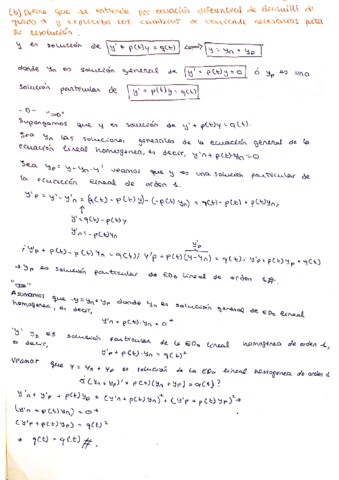 (b) Define que se entiende por ecuación diferencial de Bernoulli de
grado α y explicita los cambios de variable necesarios para
su resolución.
y es solución de y' + p(t)y = q(t) ⟺ y = yn + yp
donde yn es solución general de y' + p(t)y = 0 ó yp es una
solución particular de y' + p(t)y = q(t)
-0- "⇒"
Supongamos que y es solución de y' + p(t)y = q(t).
Sea yn las soluciones generales de la ecuación general de la
ecuación lineal homogenea, es decir, y'n + p(t)·yn = 0
Sea yp = y - yn veamos que y es una solución particular de
la ecuación lineal de orden 1.
y'p = y' - y'n = (q(t) - p(t)y) - (-p(t)yn) = q(t) - p(t) + p(t)yn;
y' = q(t) - p(t)y
y'n = -p(t)yn
yp
; y'p + p(t) - p(t)yn = q(t); y'p + p(t)(y - yn) = q(t); y'p + p(t)yp = q(t)
→ yp es solución particular de EDO lineal de orden 1 #.
"⇐"
Asumamos que y = yn + yp donde yn es solución general de EDO lineal
homogenea, es decir,
y'n + p(t)·yn = 0
"y" yp es solución particular de la EDO lineal homogenea de orden 1,
es decir,
y'p + p(t)·yn = q(t)²
que y = yn + yp es solución de la EDO lineal homogenea de orden 1
¿(yn + yp)' + p(t)(yn + yp) = q(t)?
y'n + y'p + p(t)yp = (y'n + p(t)yn) + (y'p + p(t)yp) →
(y'n + p(t)yn) = 0
(y'p + p(t)yp) = q(t)²
→ q(t) = q(t) #.